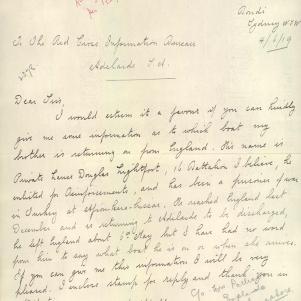 Bondi
Sydney N.S.W
4/6/19
To The Red Cross Information Bureau
Adelaide S.A.
Dear Sir,
I would esteem it a favour if you can kindly
give me some information as to which boat my
brother is returning on from England. His name is
Private Lance Douglas Lightfoot, 16 Battalion I believe, he
enlisted for Reinforcements, and has been a prisoner of war
in Turkey at He reached England last
December and is returning to Adelaide to be discharged,
he left England about 5th May but I have had no word
from him to say what boat he is on or when she arrives.
If you can give me this information I will be very
pleased. I enclose stamp for reply and thank you in
C/o Mrs